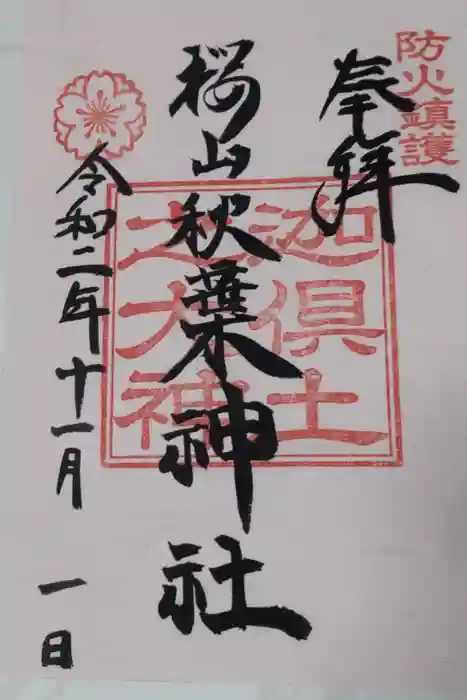 防火鎮護
奉拝
迦倶土
之大神
桜山秋葉神社
令和二年十一月一日